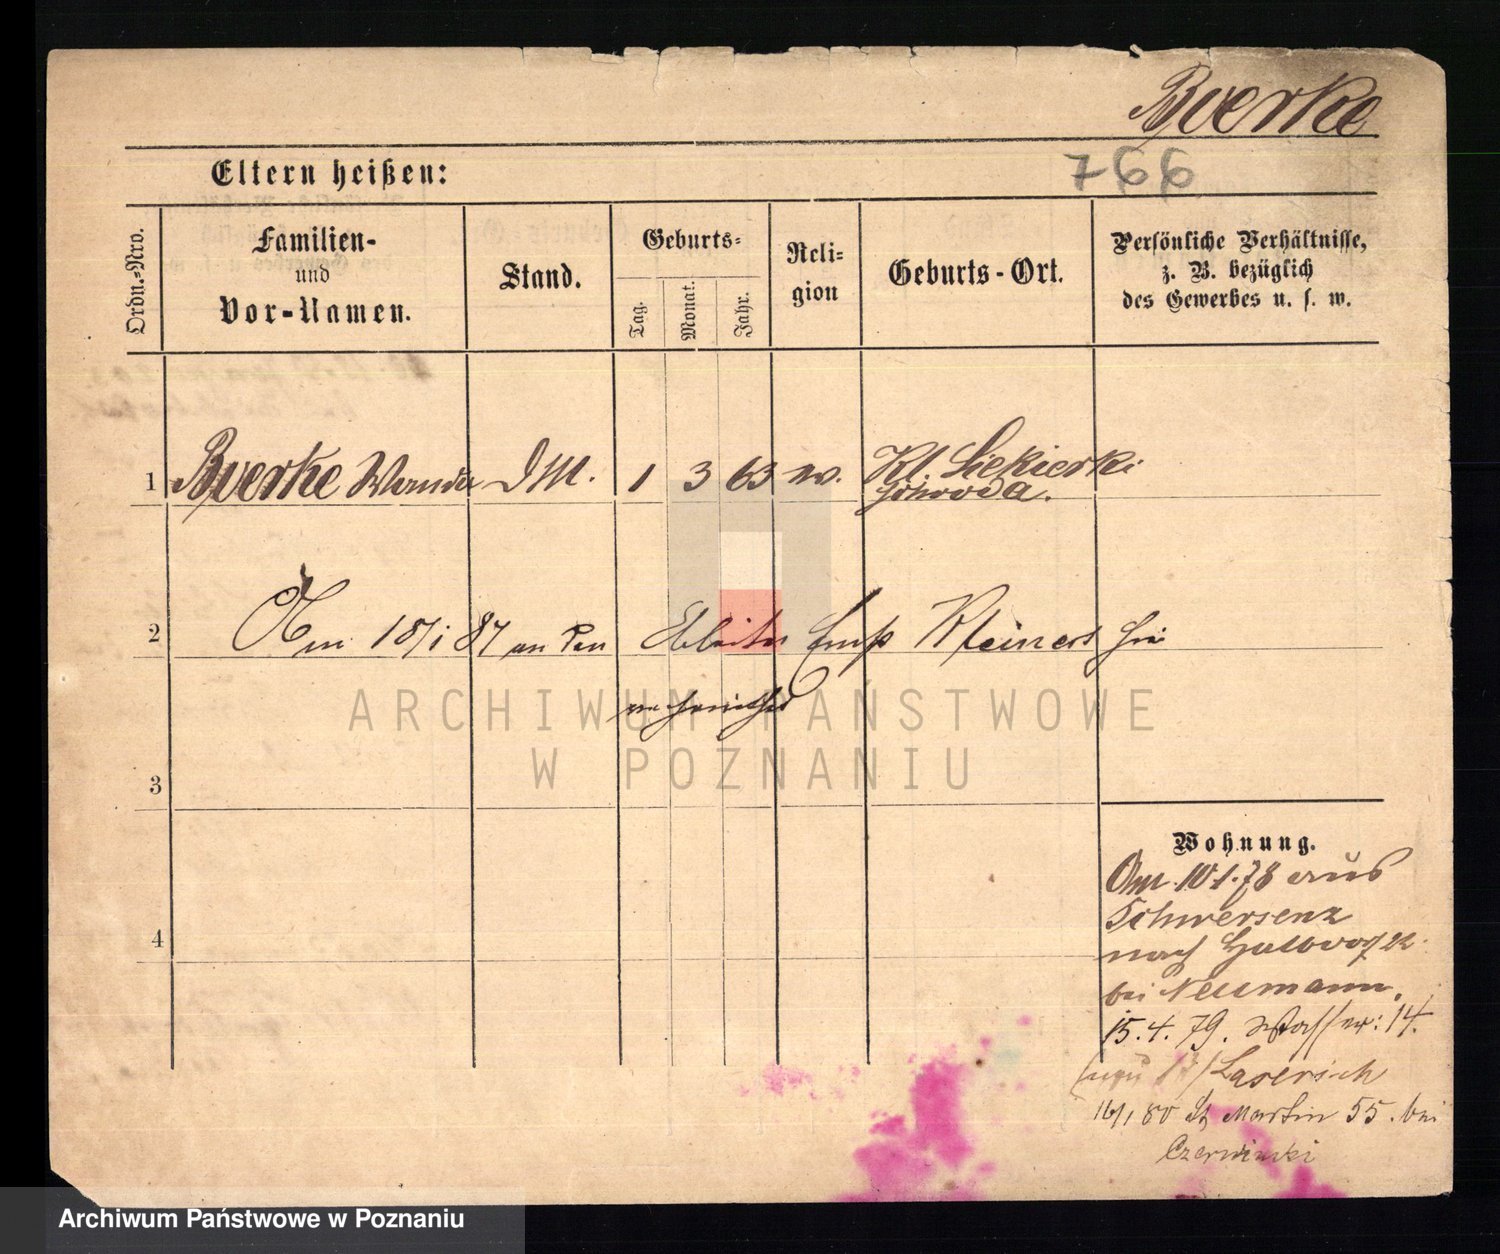 Bverke
766
Eltern heißen:
Ordn.-Nro.
Familien-
und
Vor-Namen.
Stand.
Geburts-
Tag.
Monat.
Jahr.
Reli-
gion
Geburts-Ort.
Persönliche Verhältnisse,
z. B. bezüglich
des Gewerbes u. s. w.
1 Bverke Wanda DM. 1 3 63 Kl. Siekierki
Schroda.
2 Am 18/1 87 an den Arbeiter Kleinert hie
3
ARCHIWUM PAŃSTWOWE
W POZNANIU
Wohnung.
Am 10.1.78 aus
Schwersenz
nach
bei Neumann.
15.4.79. Wasser: 14.
16/1 80 St Martin 55. bei
Czerwinski
4
Archiwum Państwowe w Poznaniu